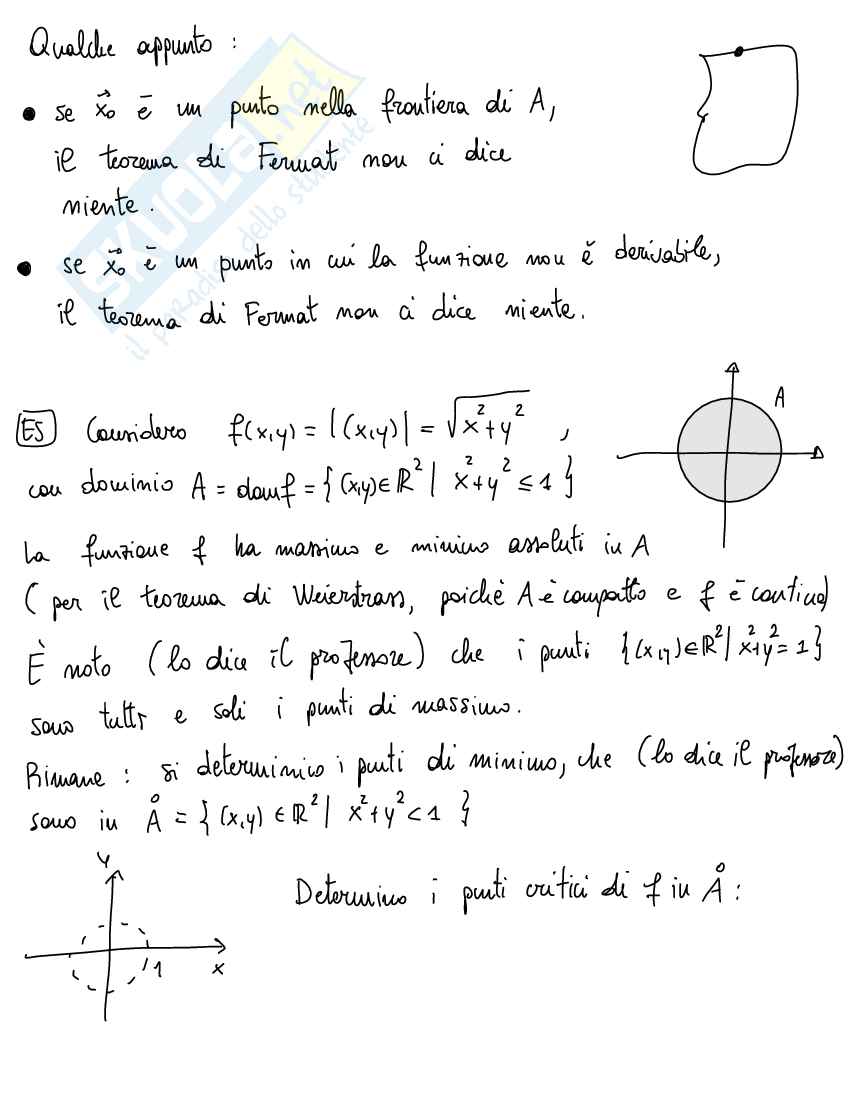 Qualche appunto :
• se x⃗₀ è un punto nella frontiera di A,
il teorema di Fermat non ci dice
niente.
• se x⃗₀ è un punto in cui la funzione non è derivabile,
il teorema di Fermat non ci dice niente.
SKUOLA.net
il paradiso dello studente
ES Considero f(x,y) = |(x,y)| = √(x²+y²) ,
con dominio A = domf = { (x,y) ∈ ℝ² | x²+y² ≤ 1 }
A
La funzione f ha massimo e minimo assoluti in A
( per il teorema di Weierstrass, poichè A è compatto e f è continua)
È noto (lo dice il professore) che i punti {(x,y) ∈ ℝ² | x²+y² = 1 }
sono tutti e soli i punti di massimo.
Rimane : si determinino i punti di minimo, che (lo dice il professore)
sono in Å = { (x,y) ∈ ℝ² | x²+y² < 1 }
y
x
1
Determino i punti critici di f in Å :